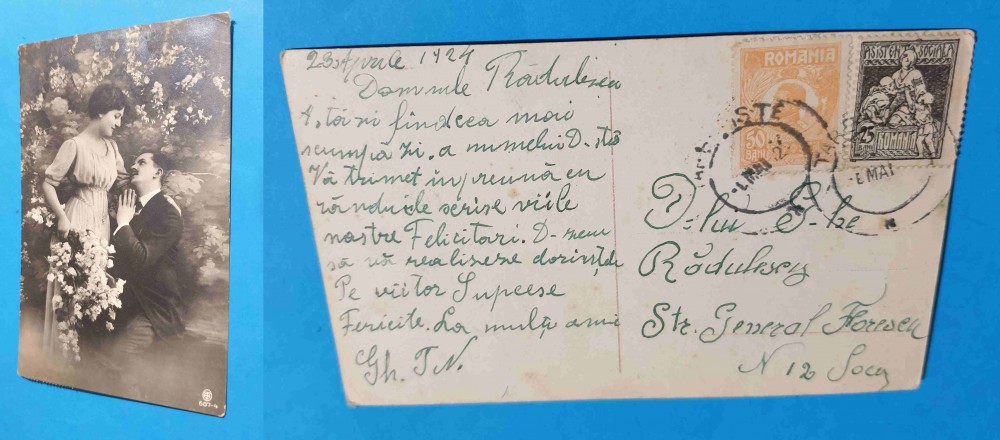 23 Aprilie 1924
Domnule Rădulescu
Astăzi fiindcea mai
scumpă zi, a numelui D-tră
Vă trimet înpreună cu
rândurile scrise viile
nastre Felicitari. D-zeu
să vă realiseze dorințele
Pe viitor Supeese
Fericite. La mulți ani
Gh. T.N.
ROMANIA
50
BANI
ASISTENȚA SOCIALA
25
BANI
ROMANIA
MAI
MAI
D-lui G-he
Rădulescu
Str. General Florescu
N 12 Locą
6617-4